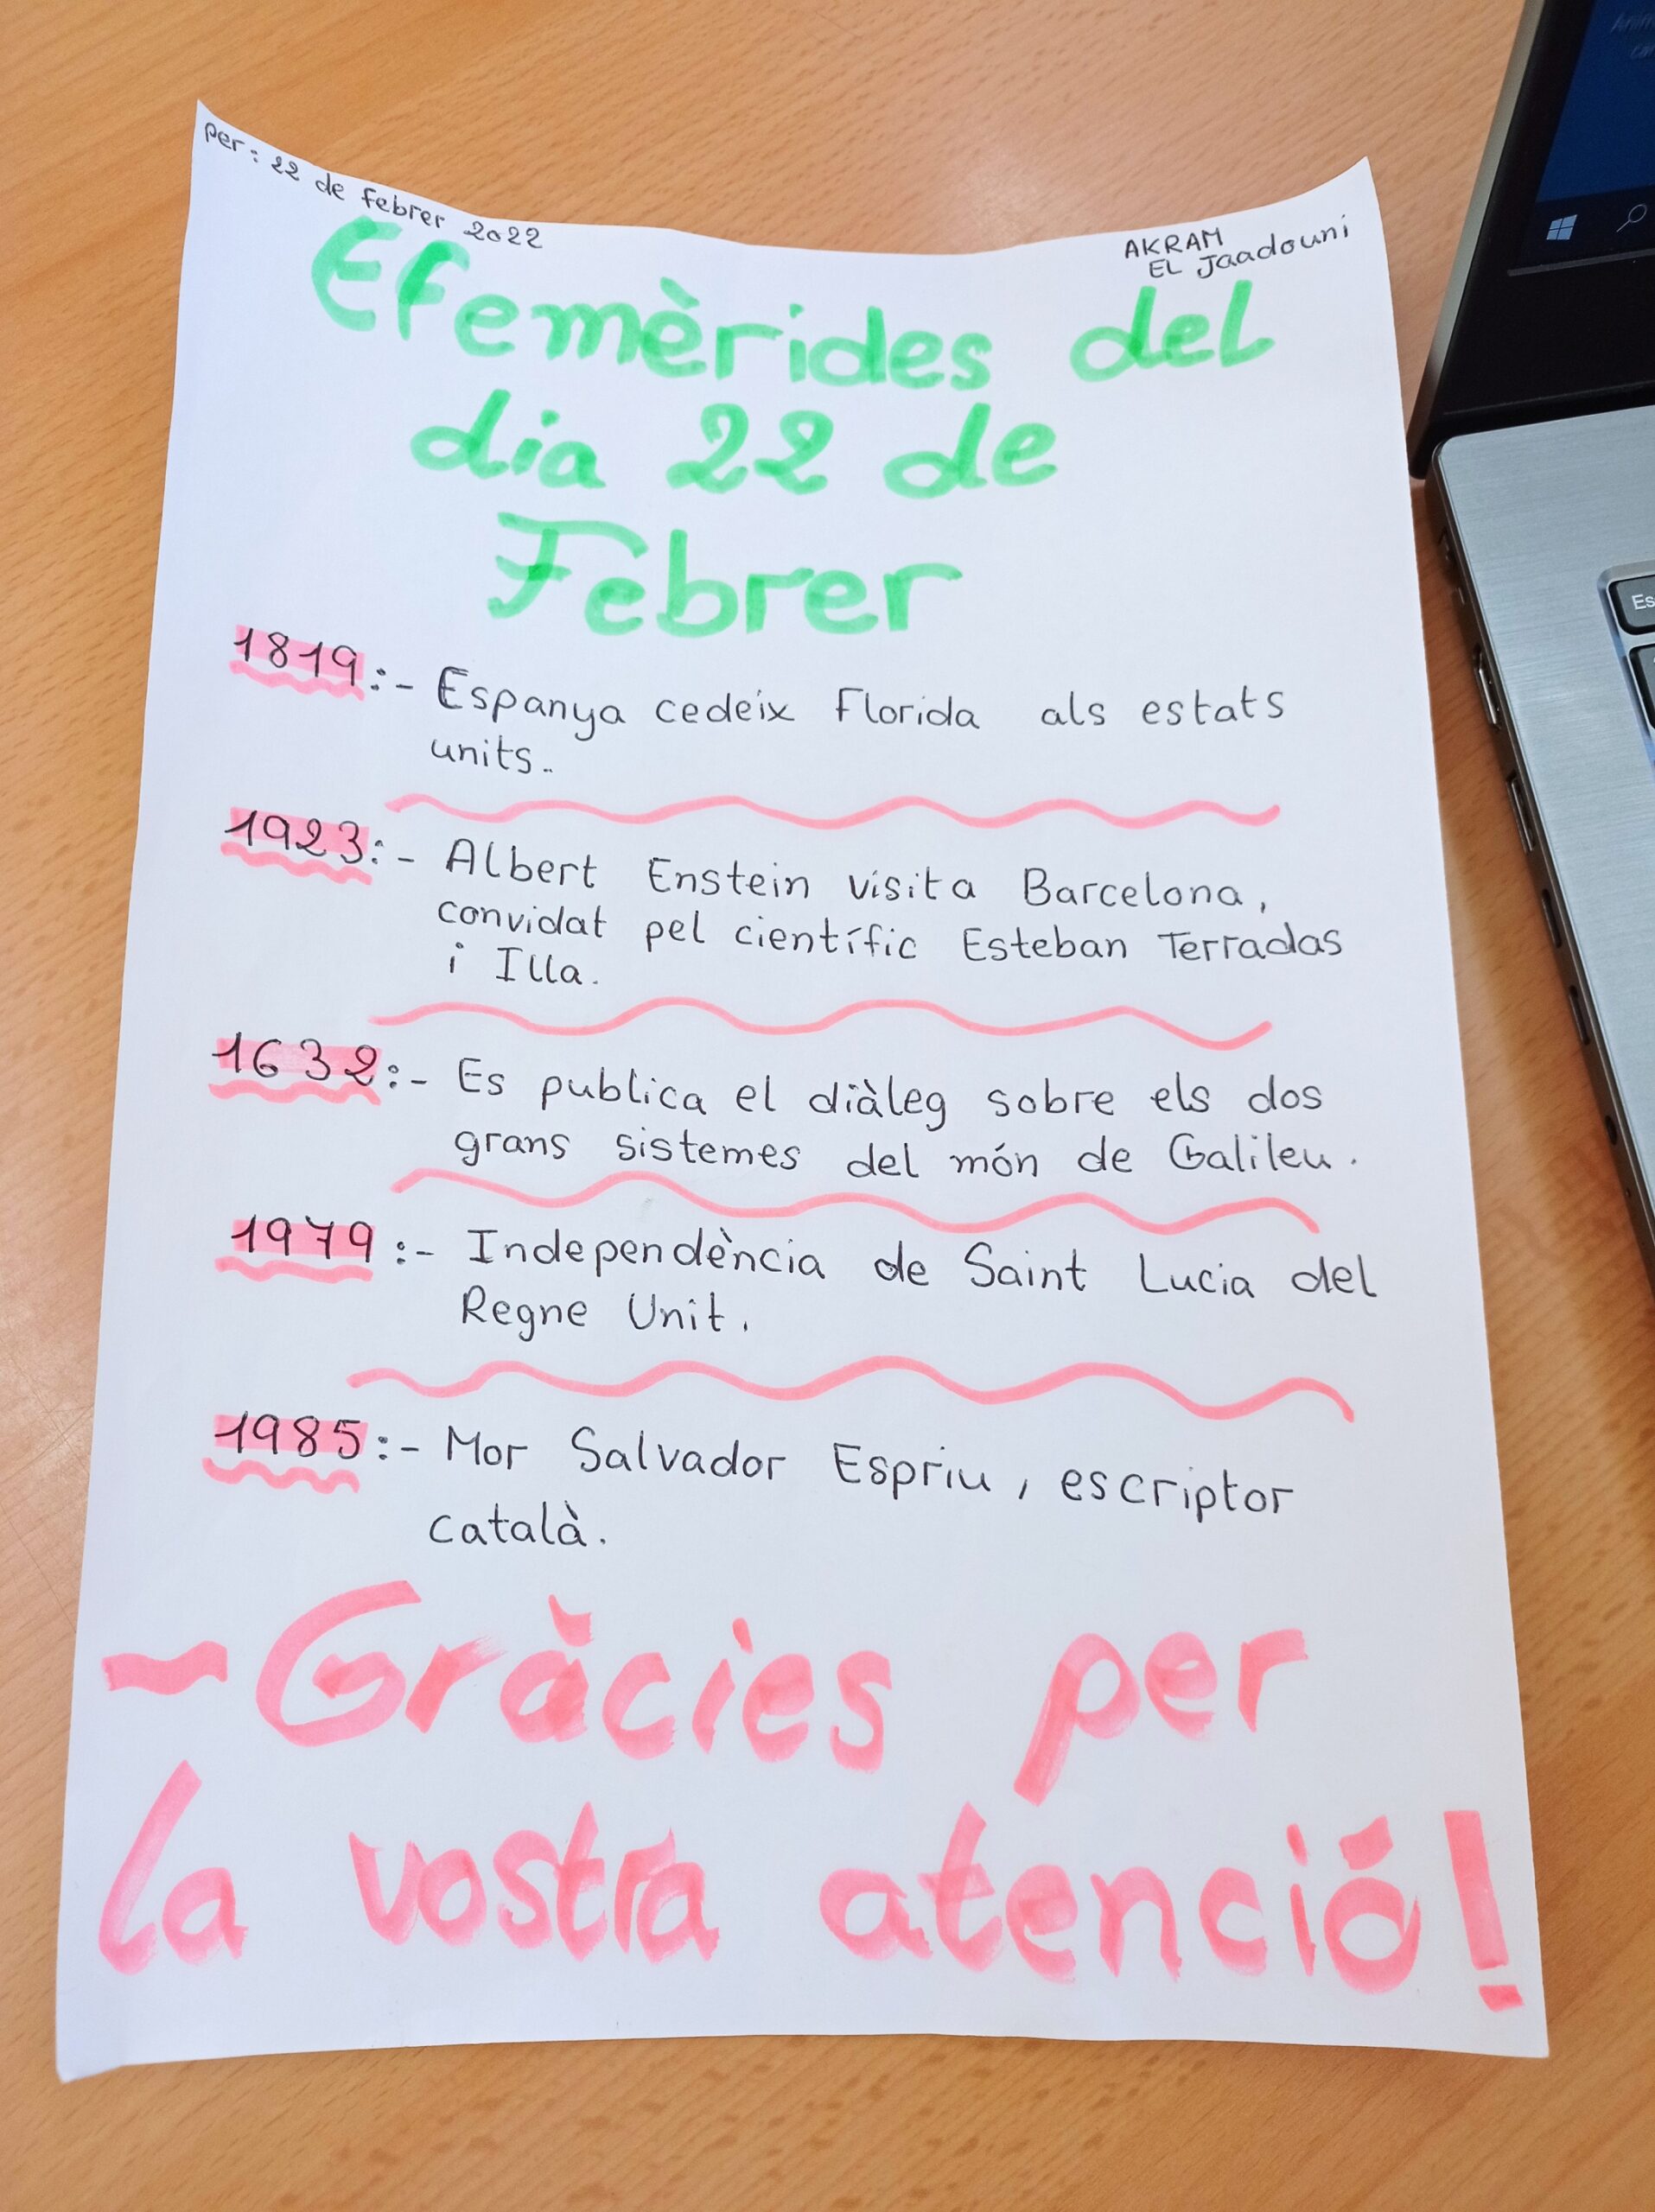 per: 22 de febrer 2022
AKRAM
EL Jaadouni
Efemèrides del
dia 22 de
Febrer
1819:- Espanya cedeix Florida als estats
units.
1923:- Albert Enstein visita Barcelona,
convidat pel científic Esteban Terradas
i Illa.
1632:- Es publica el diàleg sobre els dos
grans sistemes del món de Galileu.
1979:- Independència de Saint Lucia del
Regne Unit.
1985:- Mor Salvador Espriu, escriptor
català.
~Gràcies per
la vostra atenció!
Es